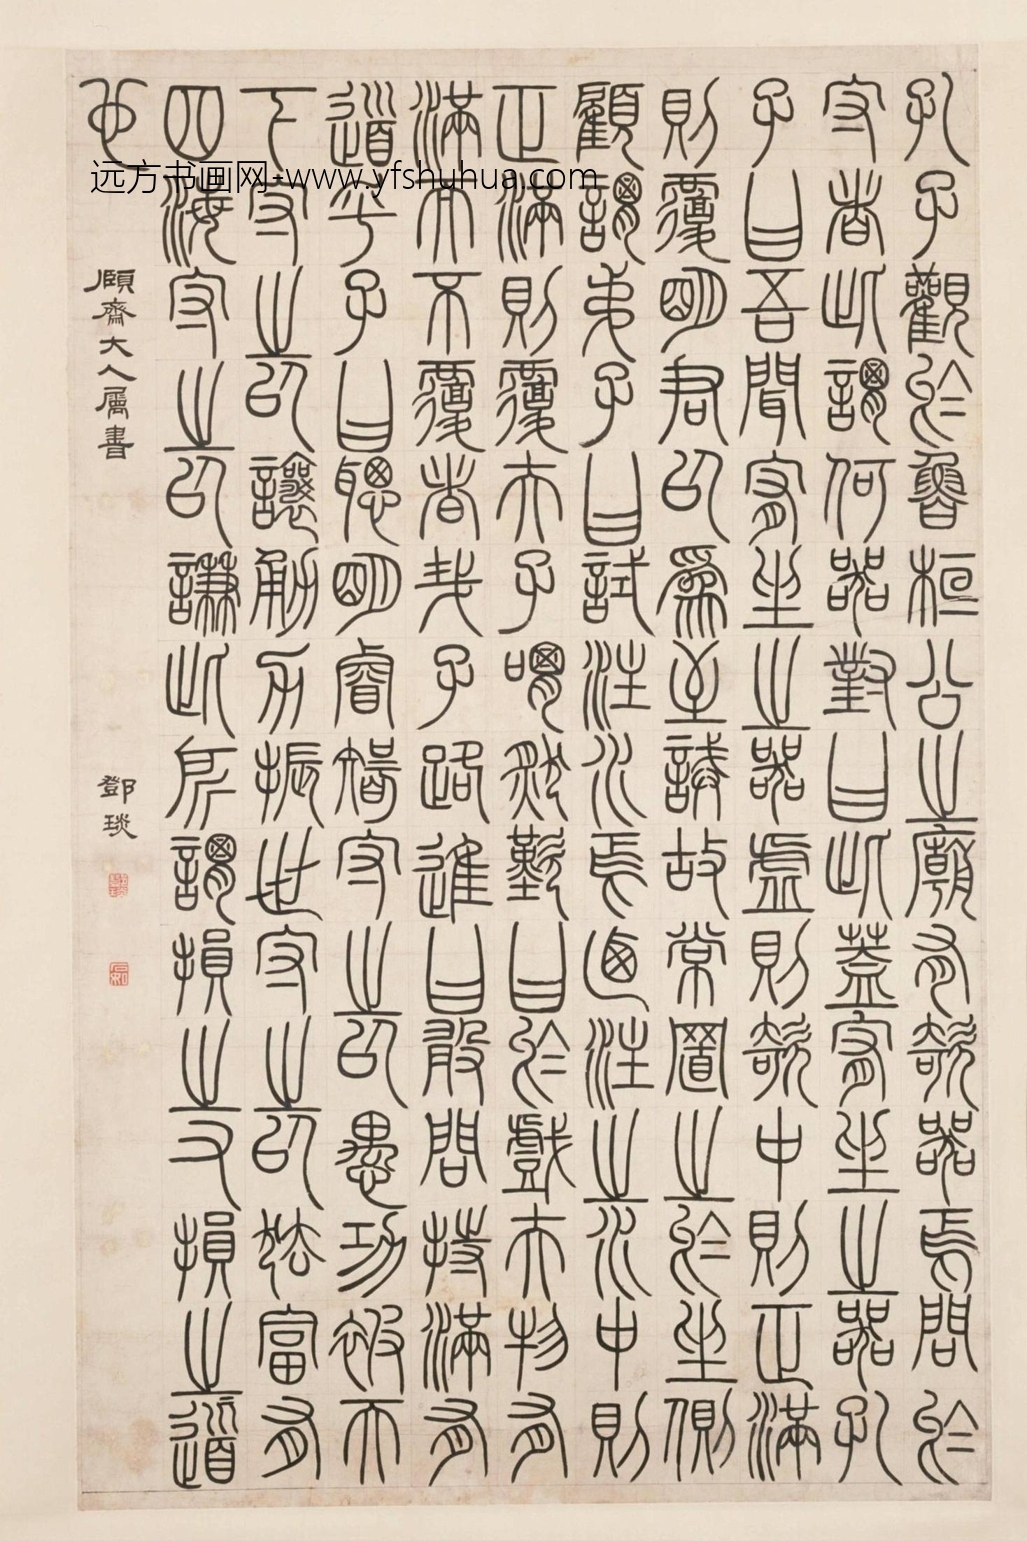 孔子觀於魯桓公之廟有欹器焉問於
守者此謂何器對曰此蓋宥坐之器孔
子曰吾聞宥坐之器虛則欹中則正滿
則覆明君以爲至誡故常置之於坐側
顧謂弟子曰試注水焉迺注之水中則
正滿則覆夫子喟然歎曰於戲夫物有
滿而不覆者哉子路進曰敢問持滿有
道乎子曰聰明睿智守之以愚功被天
下守之以讓勇力振世守之以怯富有
四海守之以謙此所謂損之又損之道
也
頤齋大人屬書
鄧琰
远方书画网-www.yfshuhua.com